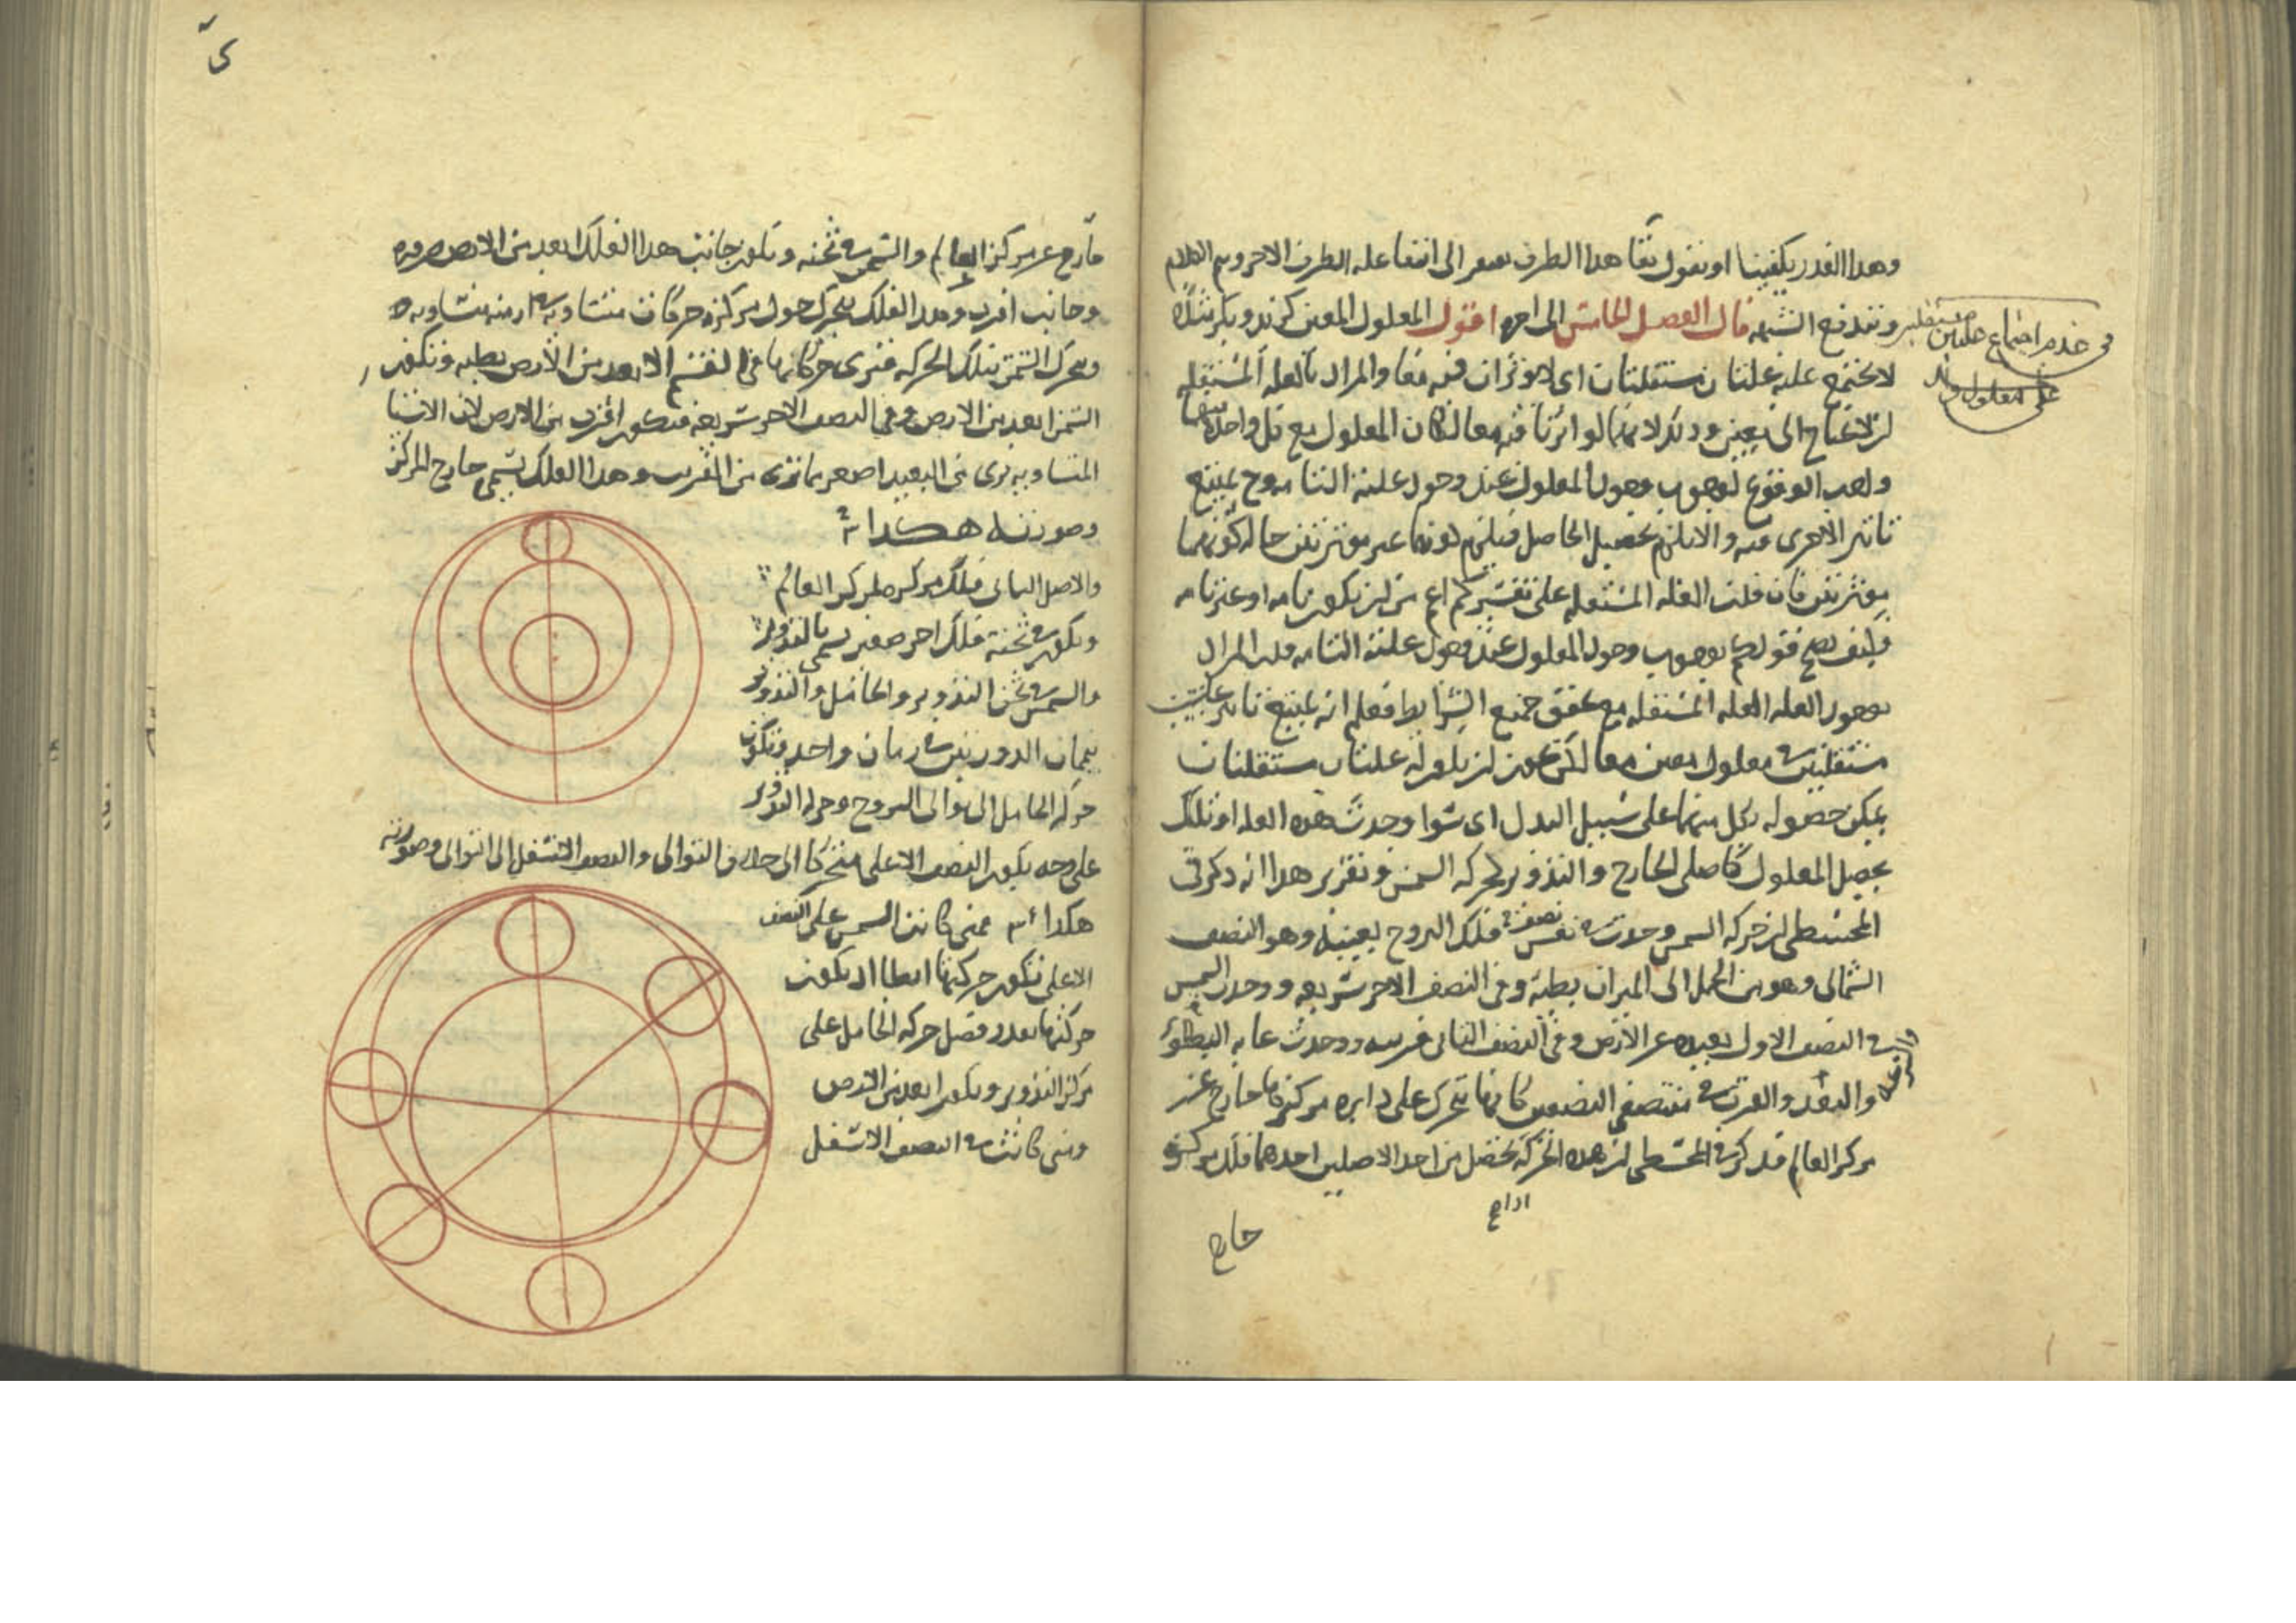 وهذا القدر يكفينا او نقول بقا هذا الطرف يفتقر الى انتفا علة الطرف الاخر ويتم الكلام
وتندفع الشبهه قال الفصل الخامس الى اخره اقول المعلول المعين كزيد وبكر مثلا
لا يجتمع عليه علتان مستقلتان اى لا يوثران فيه معا والمراد بالعلة المستقلة
ان لا تحتاج الى معين وذلك لانهما لو اثرتا فيه معا لكان المعلول مع كل واحدة منهما
واجب الوقوع لوجوب وجود المعلول عند وجود علته التامه وح يمتنع
تاثير الاخرى فيه والا يلزم تحصيل الحاصل فيلزم كونهما غير موثرتين حالة كونهما
موثرتين فان قلت العله المستقله على تفسيركم اعم من ان يكون تامه او غير تامه
وكيف يصح قولكم بوجوب وجود المعلول عند وجود علته التامه قلت المراد
بوجود العله العله المستقله مع تحقق جميع الشرايط فعلم انه يمتنع تاثير علتين
مستقلتين فى معلول معين معا لكن يجوز ان يكون له علتان مستقلتان
يمكن حصوله بكل منهما على سبيل البدل اى سوا وجدت هذه العله او تلك
يحصل المعلول كاصلى الخارج والتدوير لحركه الشمس وتقرير هذا انه ذكر فى
المجسطى ان حركه الشمس وجدت فى نصف فلك البروج بعينه وهو النصف
الشمالى وهو من الحمل الى الميزان بطيئة وفى النصف الاخر سريعه ووجدت الشمس
فى النصف الاول بعيده عن الارض وفى النصف الثانى قريبه ووجدت غاية البطؤ
والبعد والقرب فى منتصفى النصفين كانها تتحرك على دايره مركزها خارج عن
مركز العالم فذكر فى المجسطى ان هذه الحركة تحصل من احد الاصلين احدهما فلك مركزه
خارج
فى عدم اجتماع علتين مستقلتين
على معلول واحد
خارج عن مركز العالم والشمس فى ثخنه ويكون جانب هذا الفلك ابعد من الارض ضرورة
وجانب اقرب وهذا الفلك يتحرك حول مركزه حركات متشابهة فى ازمنه متساويه
ويحرك الشمس بتلك الحركه فترى حركاتها فى القسم الابعد من الارض بطيه وتكون
الشمس ابعد من الارض وفى النصف الاخر سريعه فتكون اقرب من الارض لان الاشيا
المتساويه ترى من البعيد اصغر مما ترى من القريب وهذا الفلك يسمى خارج المركز
وصورته هكذا
والاصل الثانى فلك مركزه مركز العالم
ويكون فى ثخنه فلك اخر صغير يسمى بالتدوير
والشمس فى ثخن التدوير والحامل والتدوير
يتمان الدورتين فى زمان واحد وتكون
حركه الحامل الى توالى البروج وحركه التدوير
على وجه يكون النصف الاعلى متحركا الى خلاف التوالى والنصف الاسفل الى التوالى وصورته
هكذا فمتى كانت الشمس على النصف
الاعلى تكون حركتها ابطا اذ يكون
حركتها بقدر فضل حركه الحامل على
مركز التدوير ويكون ابعد من الارض
ومتى كانت فى النصف الاسفل